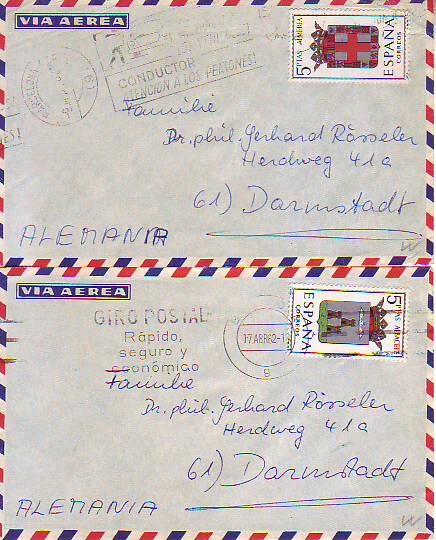 VIA AEREA
BARCELONA
CONDUCTOR
ATENCION A LOS PEATONES!
5 PTAS ALMERIA
ESPAÑA
CORREOS
Familie
Dr. phil. Gerhard Rösseler
Herdweg 41a
61) Darmstadt
ALEMANIA
VIA AEREA
GIRO POSTAL
Rápido,
seguro y
económico
17 ABR 62
9
ESPAÑA
CORREOS
5 PTAS ALBACETE
Familie
Dr. phil. Gerhard Rösseler
Herdweg 41a
61) Darmstadt
ALEMANIA